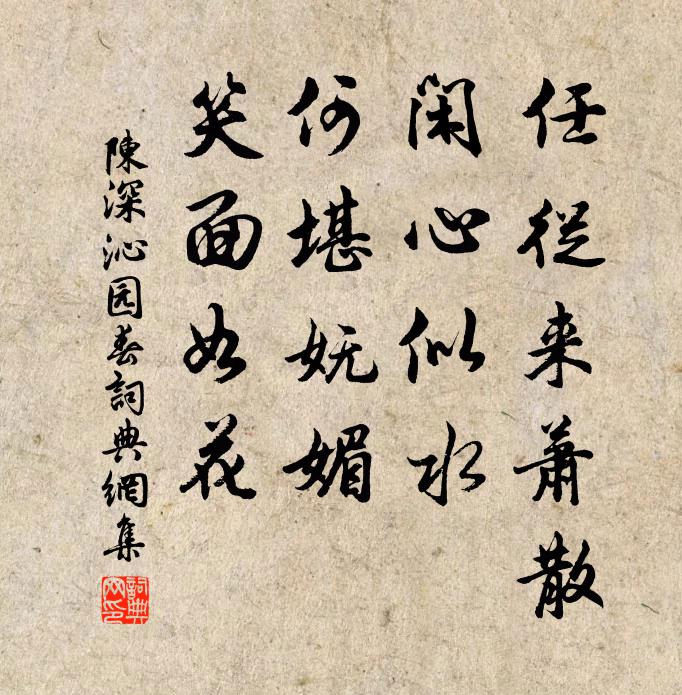 任從来蕭散
闲心似水
何堪妩媚
笑面如花
陳深沁园春詞典網集
詞典網印